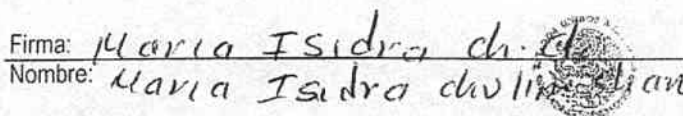 Firma: Maria Isidra ch.
Nombre: Maria Isidra